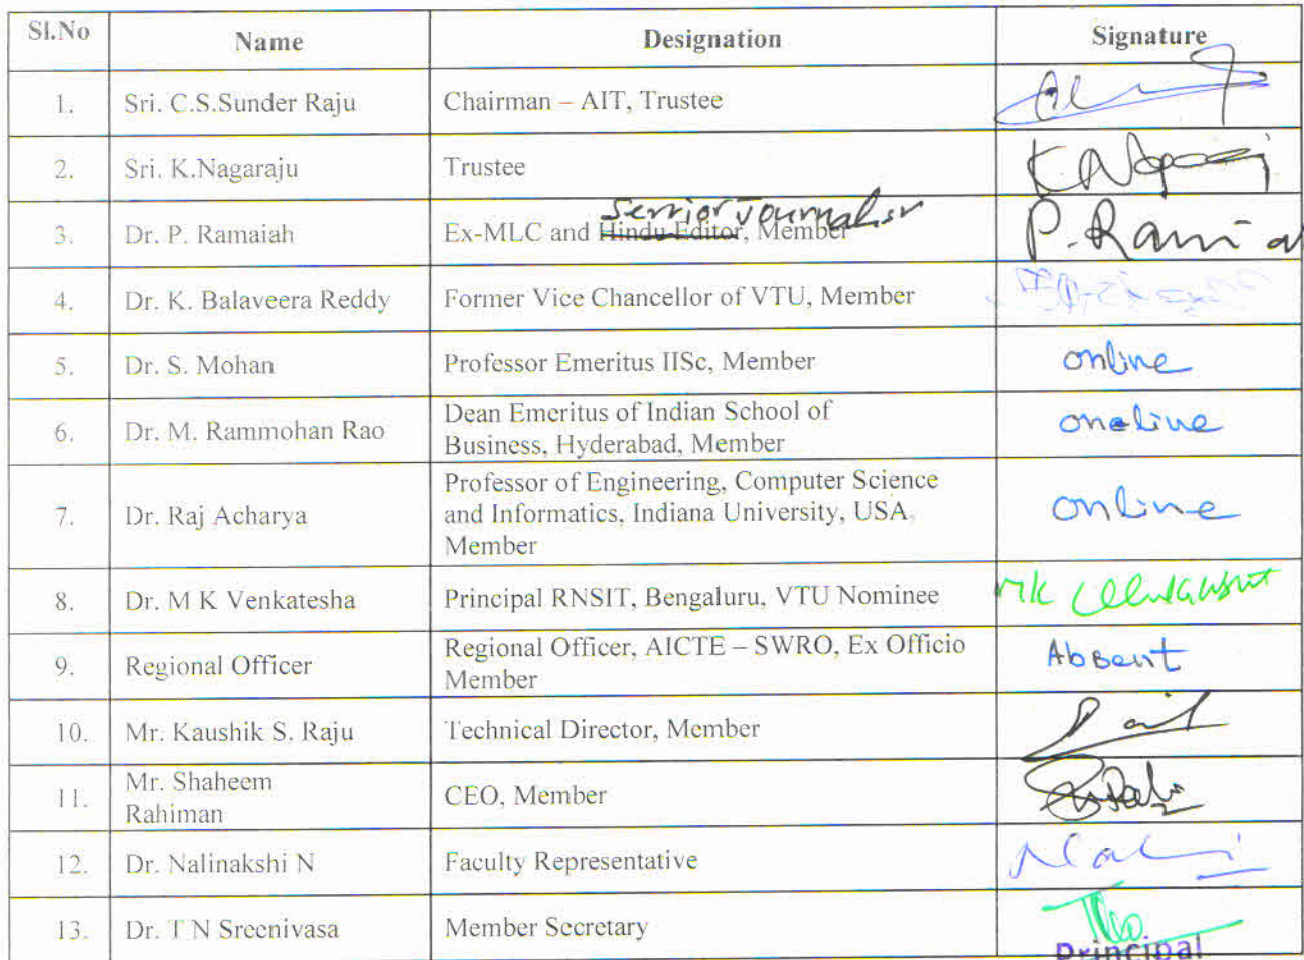 Sl.No Name Designation Signature
1. Sri. C.S.Sunder Raju Chairman – AIT, Trustee
2. Sri. K.Nagaraju Trustee
Senior Journalist
3. Dr. P. Ramaiah Ex-MLC and Hindu Editor, Member P. Ramiah
4. Dr. K. Balaveera Reddy Former Vice Chancellor of VTU, Member
5. Dr. S. Mohan Professor Emeritus IISc, Member online
6. Dr. M. Rammohan Rao Dean Emeritus of Indian School of
Business, Hyderabad, Member online
7. Dr. Raj Acharya Professor of Engineering, Computer Science
and Informatics, Indiana University, USA,
Member online
8. Dr. M K Venkatesha Principal RNSIT, Bengaluru, VTU Nominee MK
9. Regional Officer Regional Officer, AICTE – SWRO, Ex Officio
Member Absent
10. Mr. Kaushik S. Raju Technical Director, Member
11. Mr. Shaheem
Rahiman CEO, Member
12. Dr. Nalinakshi N Faculty Representative
13. Dr. T N Sreenivasa Member Secretary
Principal